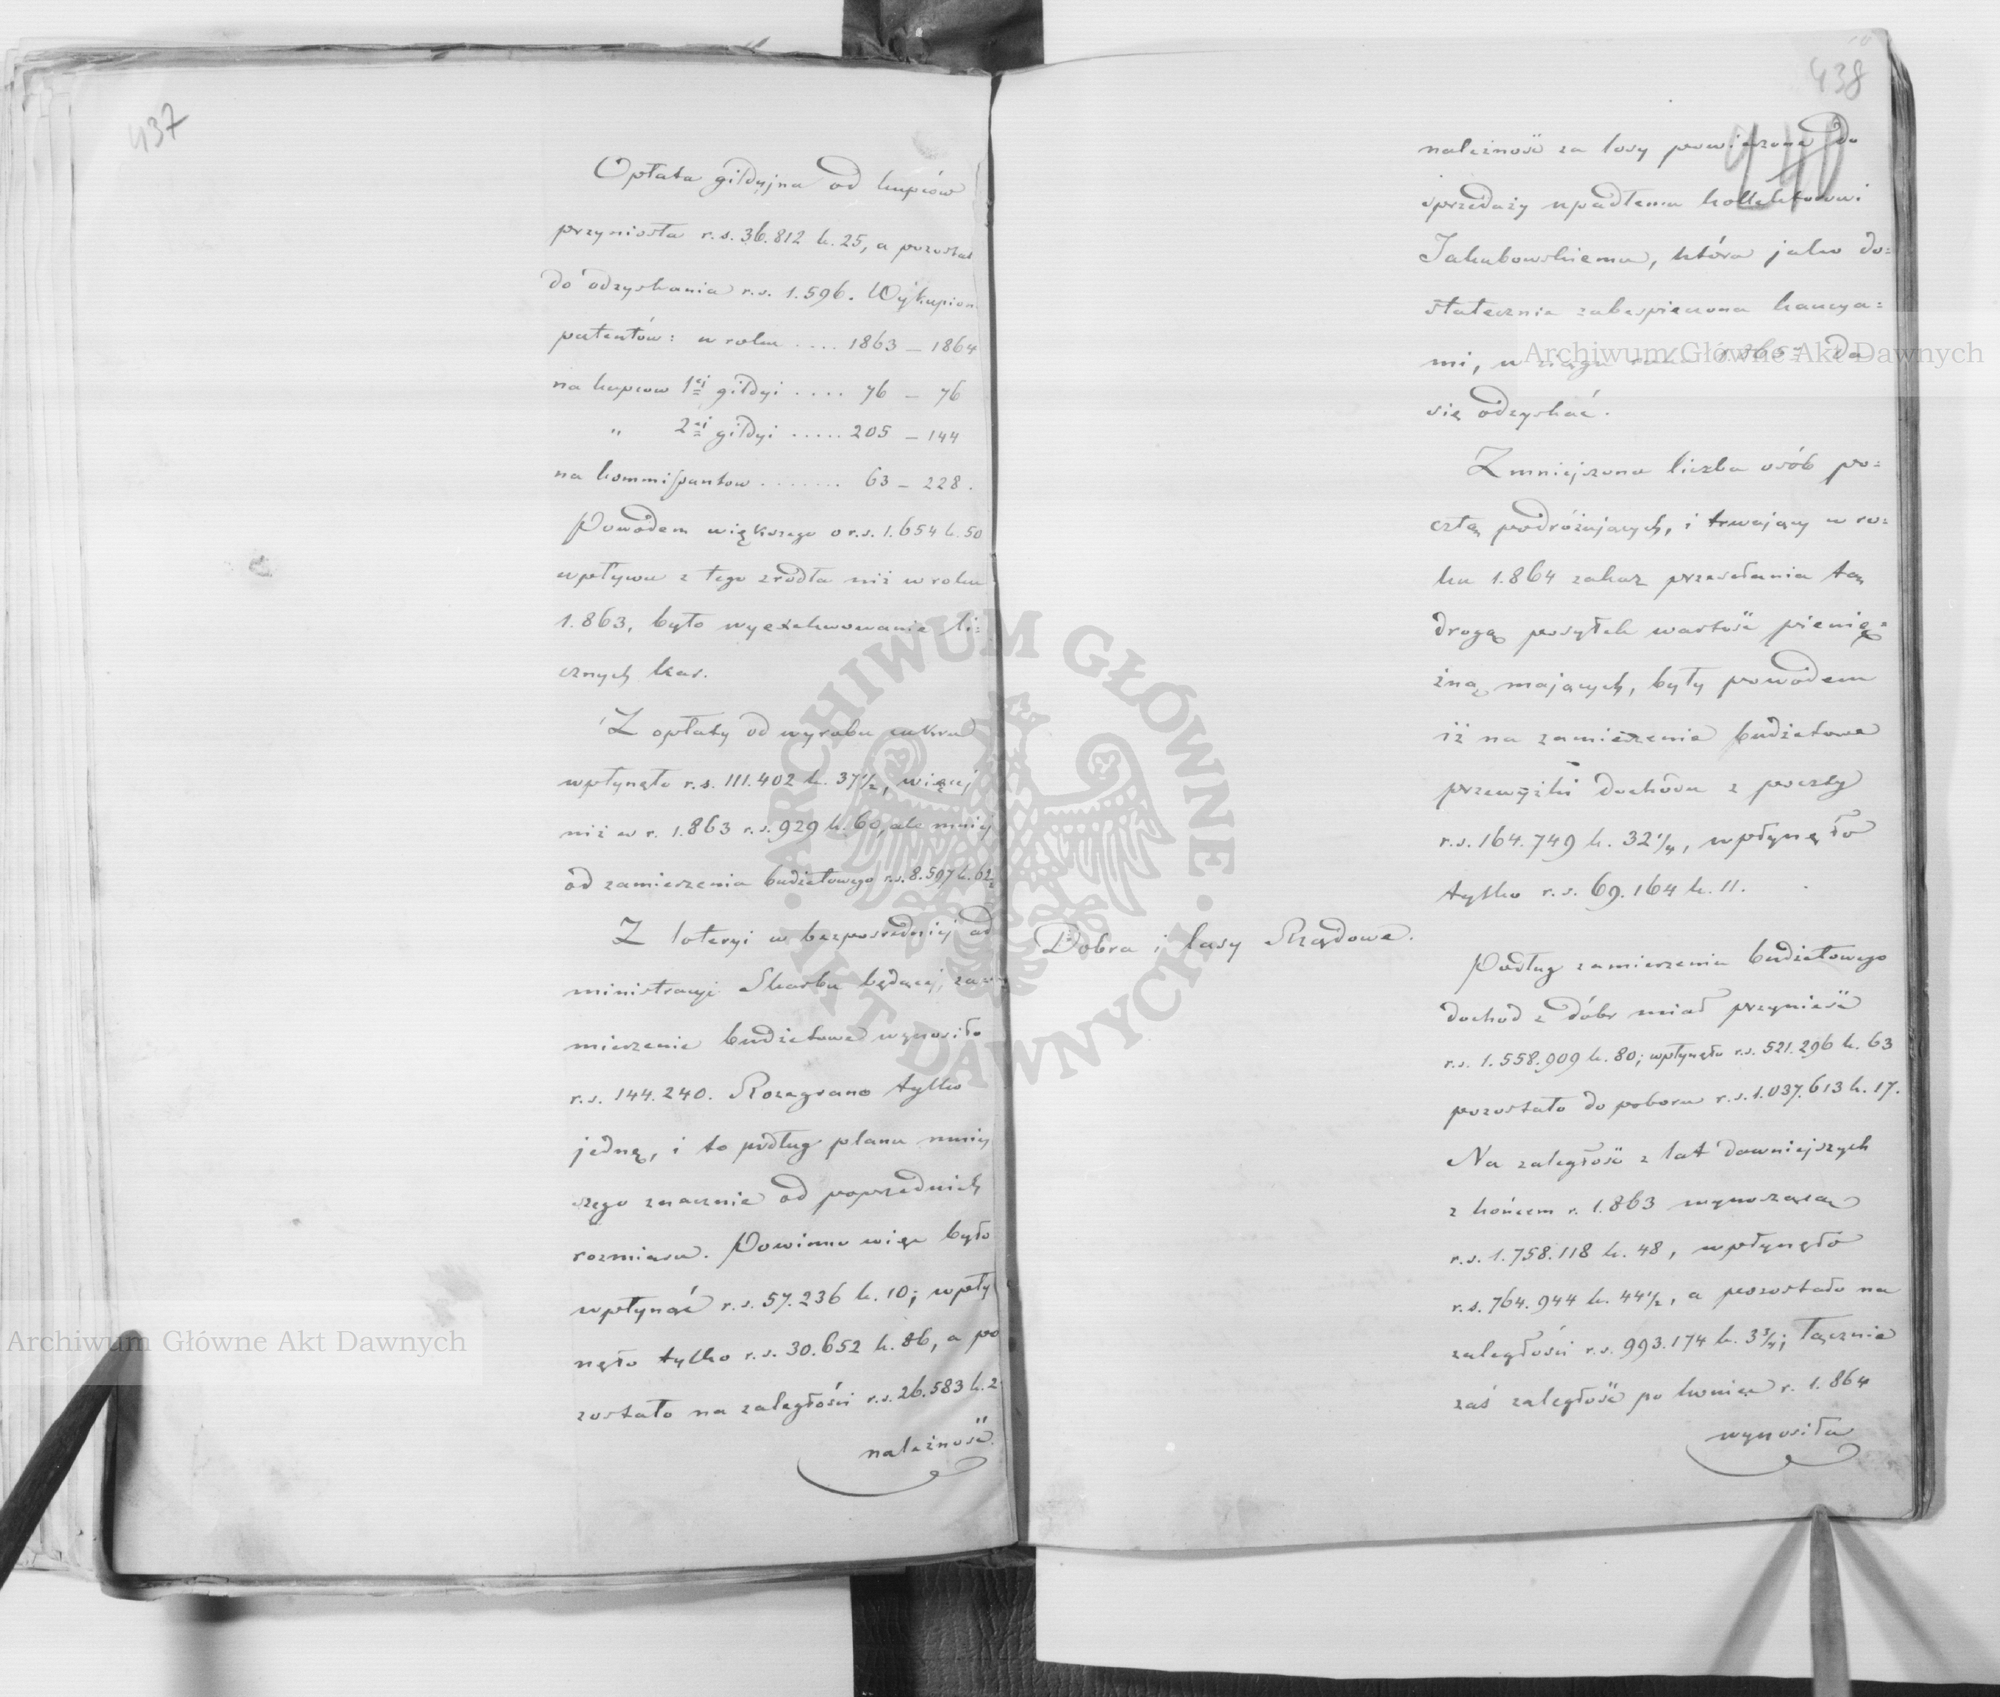 437
Opłata gildyjna od kupców
przyniosła r.s. 36.812 k. 25, a pozostał
do odzyskania r.s. 1.596. Wykupion
patentów: w roku .... 1863 – 1864
na kupcow 1ej gildyi .... 76 – 76
" 2ej gildyi ..... 205 – 144
na kommissantow ....... 63 – 228.
Powodem większego o r.s. 1.654 k. 50
wpływu z tego zrodła niż w roku
1.863, było wyexekwowanie li=
cznych kar.
Z opłaty od wyrobu cukru
wpłynęło r.s. 111.402 k. 37½, więcej
niż w r. 1.863 r.s. 929 k. 60, ale mniej
od zamierzenia budżetowego r.s. 8.597 k. 62½
Z loteryi w bezpośredniej ad
ministracyi Skarbu będącej, za
mierzenie budżetowe wynosiło
r.s. 144.240. Rozegrano tylko
jednę, i to podług planu mniej
szego znacznie od poprzednich
rozmiaru. Powinno więc było
wpłynąć r.s. 57.236 k. 10; wpły
nęło tylko r.s. 30.652 k. 86, a po
zostało na zaległości r.s. 26.583 k. 2
należność
438
440
należność za losy powierzone do
sprzedaży upadłemu kollektorowi
Jakubowskiemu, która jako do=
statecznie zabezpieczona kaucya=
mi, w ciągu roku 1865 da
się odzyskać.
Zmniejszona liczba osób po=
cztą podróżujących, i trwający w ro=
ku 1.864 zakaz przesełania tą
drogą posyłek wartość pienię=
żną mających, były powodem
iż na zamierzenie budżetowe
przewyżki dochodu z poczty
r.s. 164.749 k. 32¼, wpłynęło
tylko r.s. 69.164 k. 11.
Dobra i lasy Rządowe.
Podług zamierzenia budżetowego
dochod z dóbr miał przynieść
r.s. 1.558.909 k. 80; wpłynęło r.s. 521.296 k. 63
pozostało do poboru r.s. 1.037.613 k. 17.
Na zaległość z lat dawniejszych
z końcem r. 1.863 wynoszącą
r.s. 1.758.118 k. 48, wpłynęło
r.s. 764.944 k. 44½, a pozostało na
zaległości r.s. 993.174 k. 3¾; łącznie
zaś zaległość po koniec r. 1.864
wynosiła
Archiwum Główne Akt Dawnych
Archiwum Główne Akt Dawnych
ARCHIWUM GŁÓWNE · AKT DAWNYCH ·